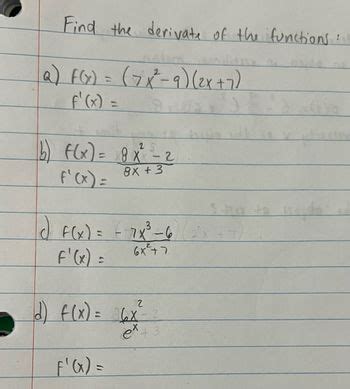 Find the derivate of the functions:
a) f(x) = (7x²-9)(2x+7)
f'(x) =
b) f(x) = 8x² - 2
8x + 3
f'(x) =
c) f(x) = - 7x³ - 6
6x² + 7
f'(x) =
d) f(x) = 6x²
eˣ
f'(x) =